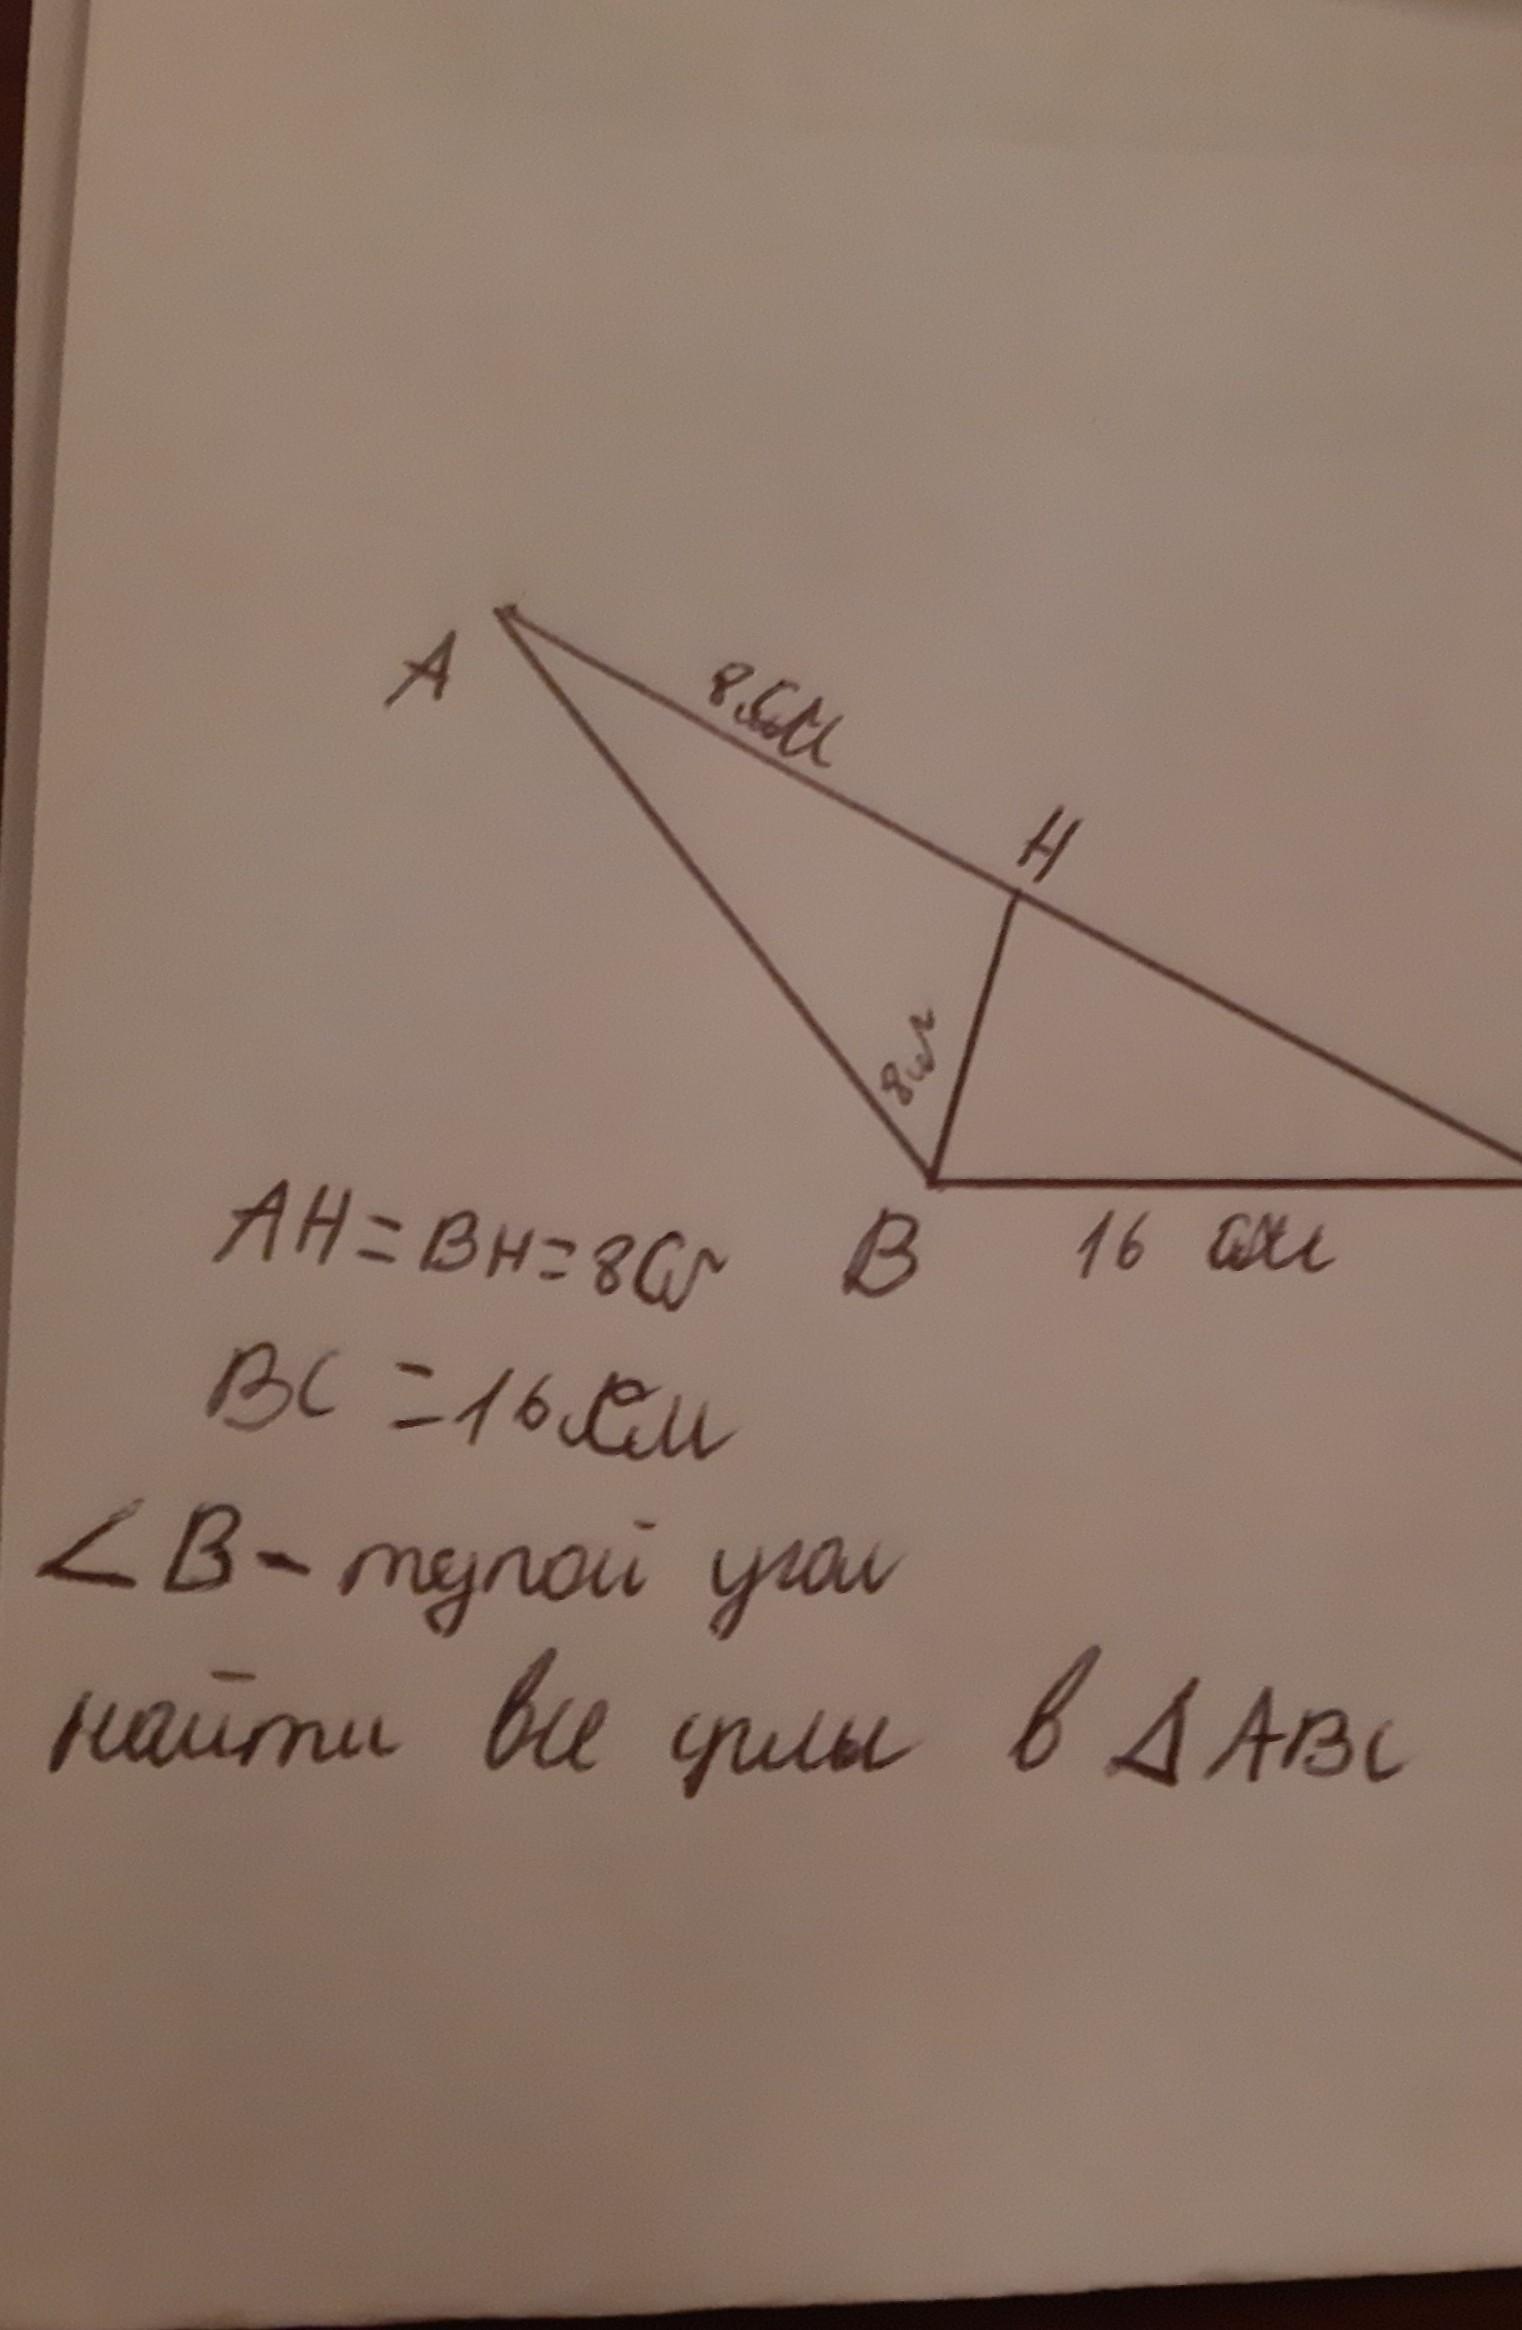 A
8 см
H
8 см
B
16 см
AH = BH = 8 см
BC = 16 см
∠B - тупой угол
найти все углы в ΔABC